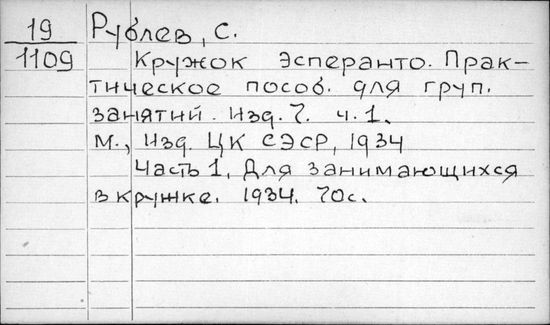 19
1109
Рублев, С.
Кружок эсперанто. Прак-
тическое пособ. для груп.
занятий. Изд. 7. ч. 1.
М., Изд. ЦК СЭСР, 1934
Часть 1, Для занимающихся
в кружке. 1934. 70с.